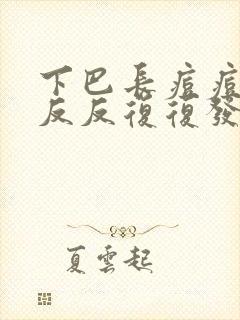 下巴長痘痘
反反復復發
夏雲起